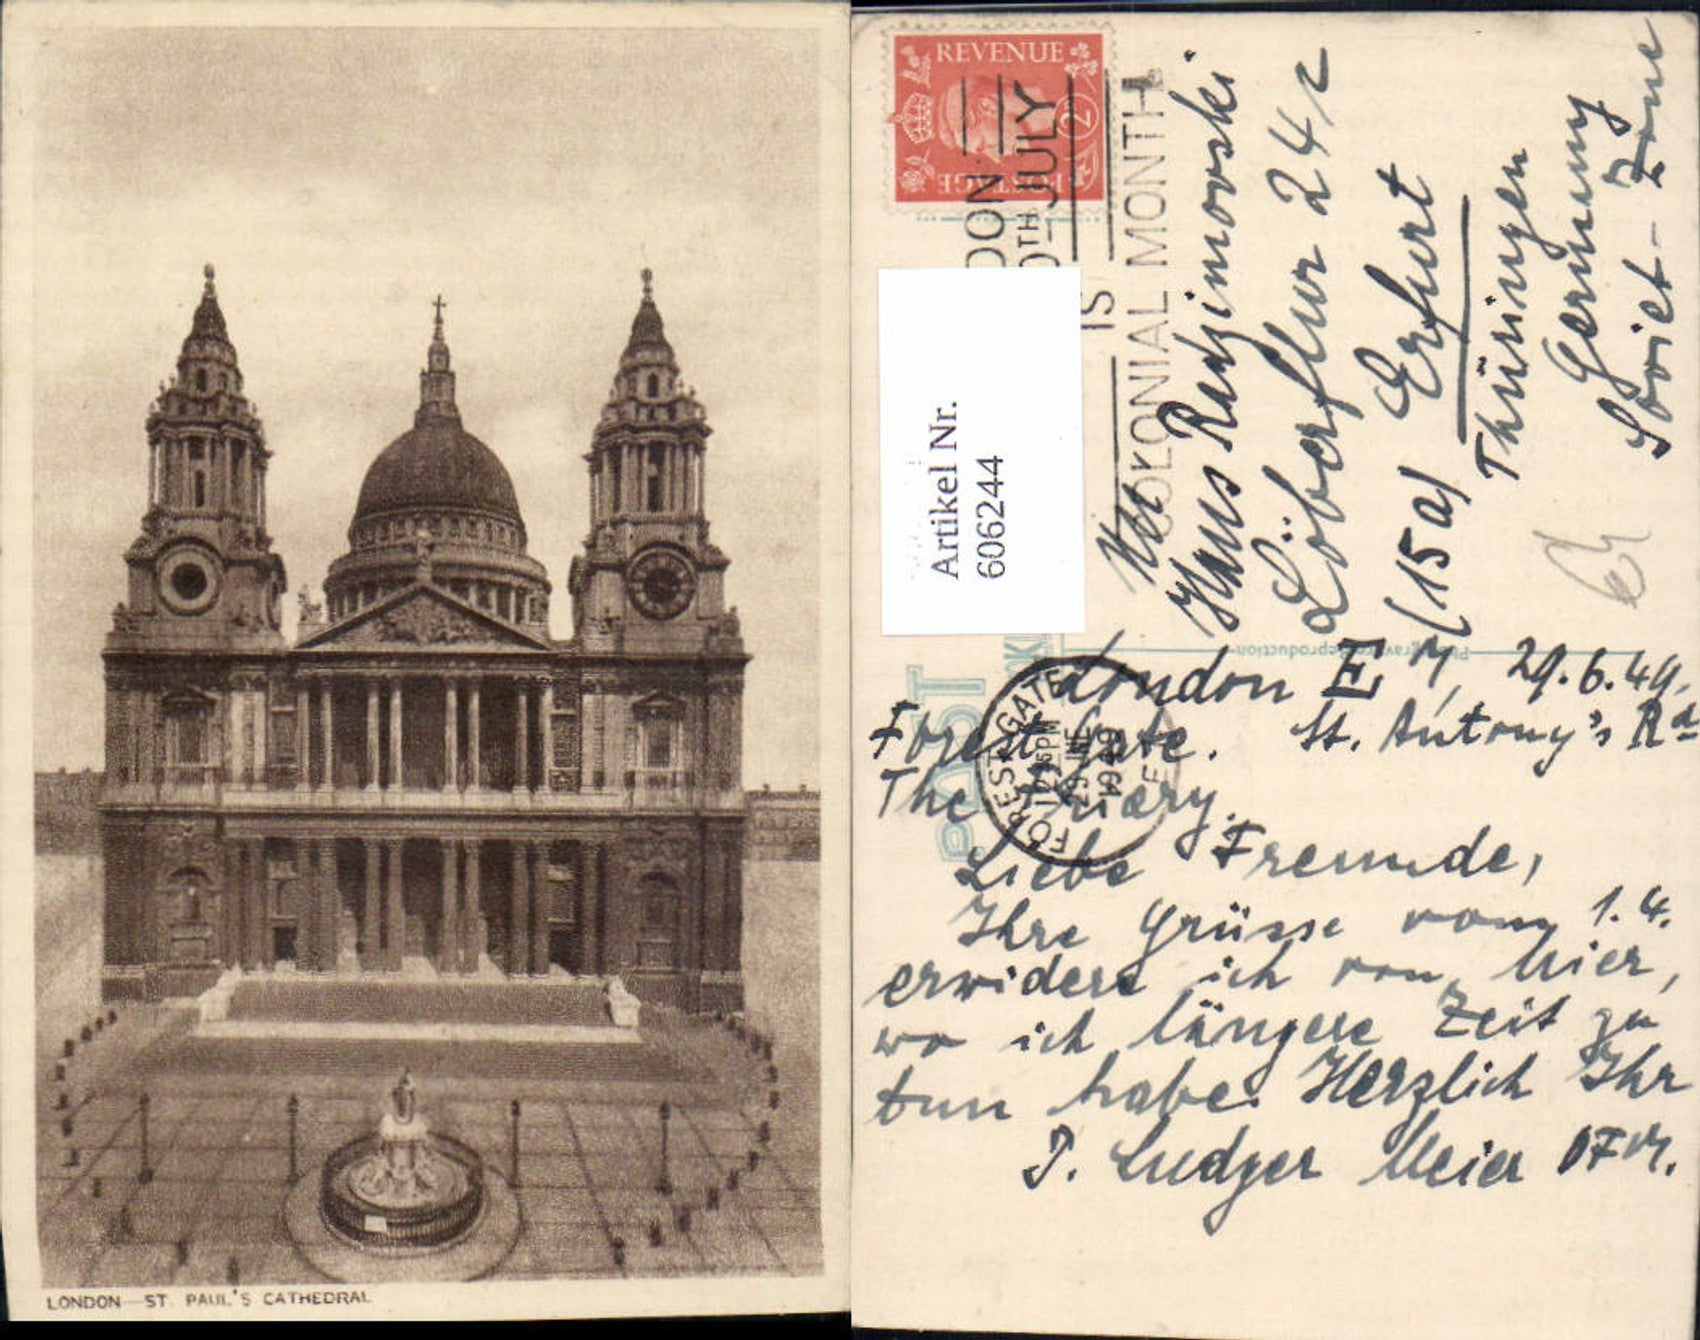 LONDON ST. PAUL'S CATHEDRAL
REVENUE
POSTAGE
2D
DON
0TH JULY
IS
COLONIAL MONTH
Artikel Nr.
606244
Hans Radzimovski
Löberflur 24
(15a) Erfurt
Thüringen
Germany
Soviet-Zone
POST
FOREST GATE
12 15 PM
29 JNE
1949
E
London E 7, 29.6.49.
Forest Gate. St. Antony's Rd
The Friary.
Liebe Freunde,
Ihre Grüsse vom 1.4.
erwidere ich von hier,
wo ich längere Zeit zu
tun habe. Herzlich Ihr
P. Ludger Meier OFM.